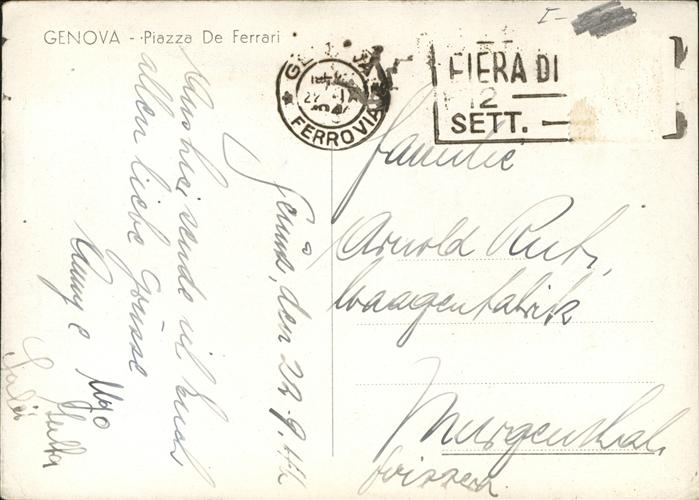 GENOVA - Piazza De Ferrari
I-
FERROVIA
FIERA DI
12
SETT.
Genua, den 22.9.
sende ich Euch
allen liebe Grüsse
Ugo
Familie
Arnold Ruf,
Waagenfabrik
Murgenthal
Svizzera